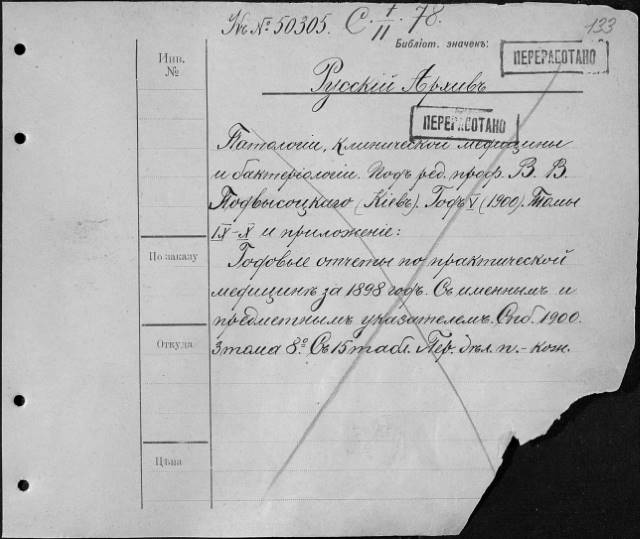 № 50305. С. I/II 78.
133
Библіот. значекъ:
ПЕРЕРАБОТАНО
Инв.
№
Русскій Архивъ
ПЕРЕРАБОТАНО
Патологіи, клинической медицины
и бактеріологіи. Подъ ред. проф. В. В.
Подвысоцкаго (Кіевъ). Годъ V (1900). Томы
IX–X и приложеніе:
По заказу
Годовые отчеты по практической
медицинѣ за 1898 годъ. Съ именнымъ и
предметнымъ указателемъ. Спб. 1900.
Откуда
3 тома 8º. Съ 15 табл. Пер. дѣл. п.-кож.
Цѣна